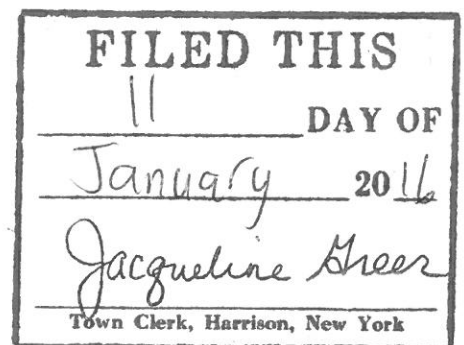 FILED THIS
11
DAY OF
January 2016
Jacqueline Greer
Town Clerk, Harrison, New York